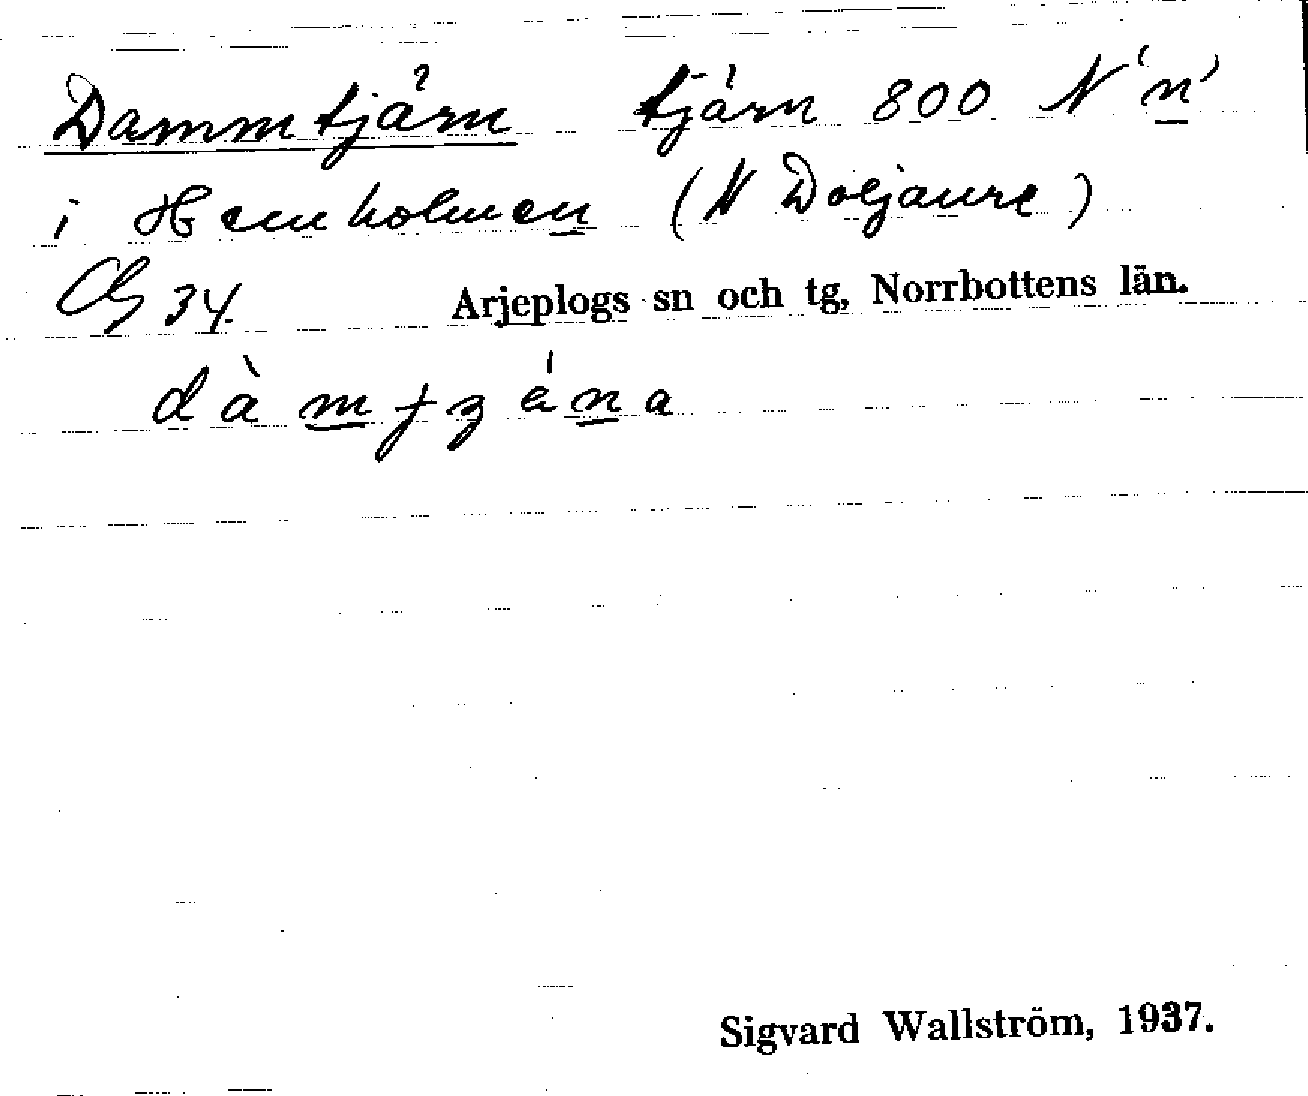 Dammtjärn tjärn 800 N'n'
i Hemholmen (N Doljaure)
34. Arjeplogs sn och tg, Norrbottens län.
Sigvard Wallström, 1937.